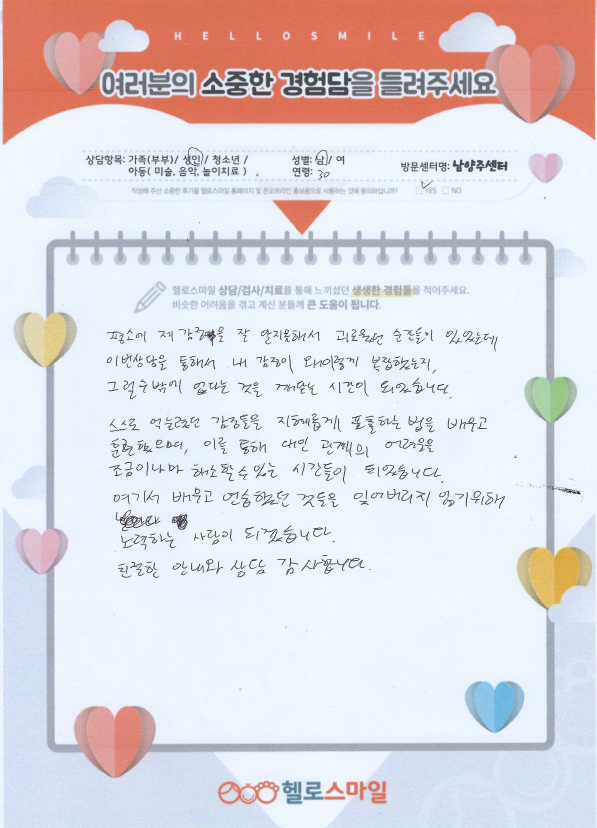 HELLOSMILE
여러분의 소중한 경험담을 들려주세요
상담항목: 가족(부부)/ 성인 / 청소년 /
아동( 미술, 음악, 놀이치료 )
성별: 남 / 여
연령: 30
방문센터명: 남양주센터
작성해 주신 소중한 후기를 헬로스마일 홈페이지 및 온오프라인 홍보용으로 사용하는 것에 동의하십니까? ✓ □ YES □ NO
헬로스마일 상담/검사/치료를 통해 느끼셨던 생생한 경험들을 적어주세요.
비슷한 어려움을 겪고 계신 분들께 큰 도움이 됩니다.
평소에 제 감정을 잘 알지못해서 괴로웠던 순간들이 있었는데
이번상담을 통해서 내 감정이 왜이렇게 복잡했는지,
그럴수밖에 없다는 것을 깨닫는 시간이 되었습니다.
스스로 억눌렀던 감정들을 지혜롭게 표출하는 법을 배우고
훈련했으며, 이를 통해 대인 관계의 어려움을
조금이나마 해소할수있는 시간들이 되었습니다.
여기서 배우고 연습했던 것들을 잊어버리지 않기위해
노력하는 사람이 되겠습니다.
친절한 안내와 상담 감사합니다.
헬로스마일